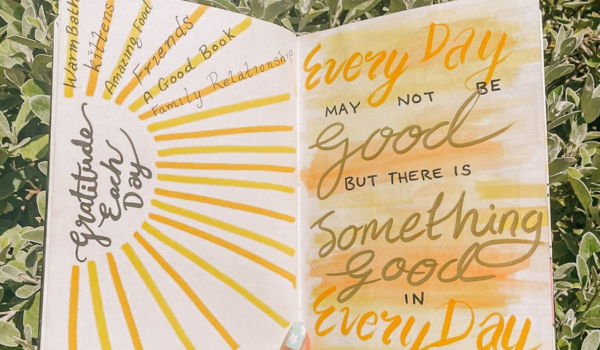 Warm Bath
Kittens
Amazing Food
Friends
A Good Book
Family Relationship
Gratitude
Each
Day
Every Day
MAY NOT BE
Good
BUT THERE IS
Something
Good
IN
Every Day